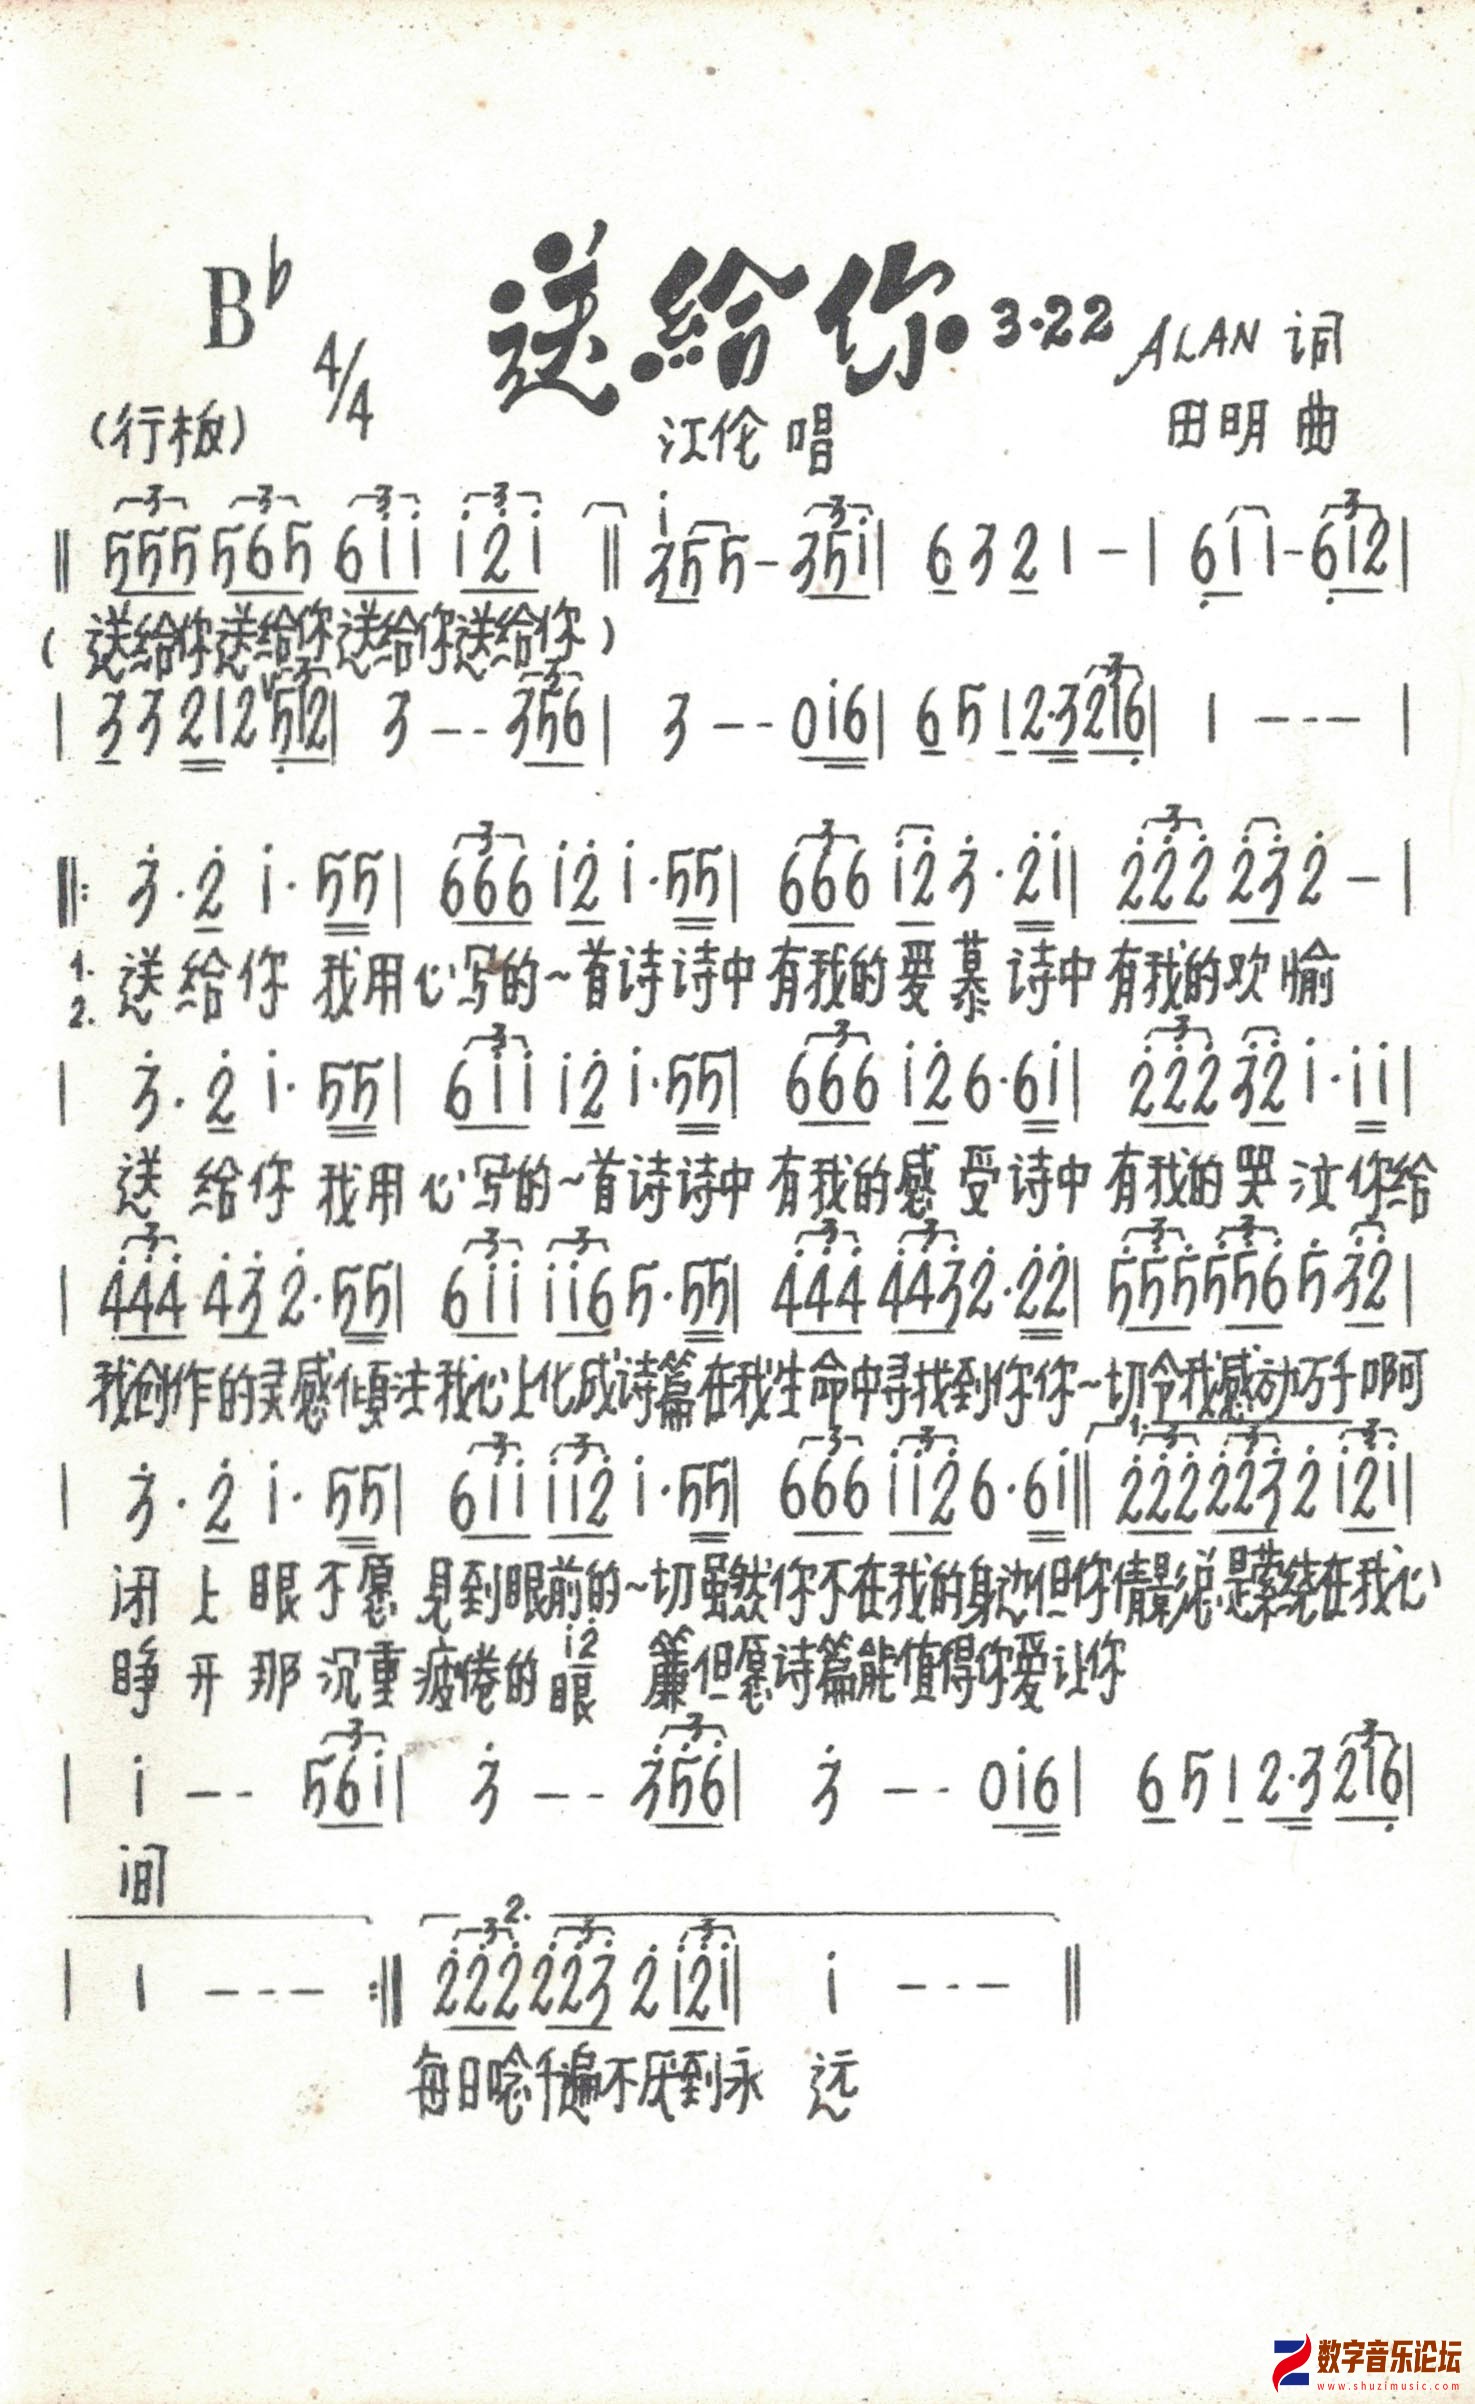 B♭ 4/4
送給你 3·22
ALAN 词
(行板)
江伦 唱
田明 曲
‖ 555 565 6i̇i̇ i̇2̇i̇ ‖ 355- 35i̇ | 6321- | 611-612 |
(送给你送给你送给你送给你)
| 33212 512 | 3--356 | 3--0i̇6 | 6512·3216 | 1--- |
‖: 3̇·2̇ i̇·55 | 666 i̇2̇ i̇·55 | 666 i̇2̇ 3̇·2̇i̇ | 2̇2̇2̇ 2̇3̇ 2̇- |
1. 送给你 我用心写的一首诗诗中有我的爱慕诗中有我的欢愉
2.
| 3̇·2̇ i̇·55 | 6i̇i̇ i̇2̇ i̇·55 | 666 i̇2̇ 6·6i̇ | 2̇2̇2̇ 3̇2̇ i̇·i̇i̇ |
送给你 我用心写的一首诗诗中有我的感受诗中有我的哭泣你给
| 4̇4̇4̇ 4̇3̇ 2̇·55 | 6i̇i̇ i̇i̇6 5·55 | 4̇4̇4̇ 4̇4̇3̇ 2̇·2̇2̇ | 5̇5̇5̇ 5̇5̇6̇ 5̇ 3̇2̇ |
我创作的灵感倾注我心上化成诗篇在我生命中寻找到你你一切令我感动万千啊
1.
| 3̇·2̇ i̇·55 | 6i̇i̇ i̇i̇2̇ i̇·55 | 666 i̇i̇2̇ 6·6i̇ ‖ 2̇2̇2̇ 2̇2̇3̇ 2̇ i̇2̇i̇ |
闭上眼不愿见到眼前的一切虽然你不在我的身边但你倩影总是萦绕在我心
i̇2̇
睁开那沉重疲倦的眼簾但愿诗篇能值得你爱让你
| i̇-- 56i̇ | 3̇-- 3̇5̇6̇ | 3̇-- 0i̇6 | 6512·3216 |
间
2.
| 1--- :‖ 2̇2̇2̇ 2̇2̇3̇ 2̇ i̇2̇i̇ | i̇--- ‖
每日唸千遍不厌到永远
数字音乐论坛
www.shuzimusic.com